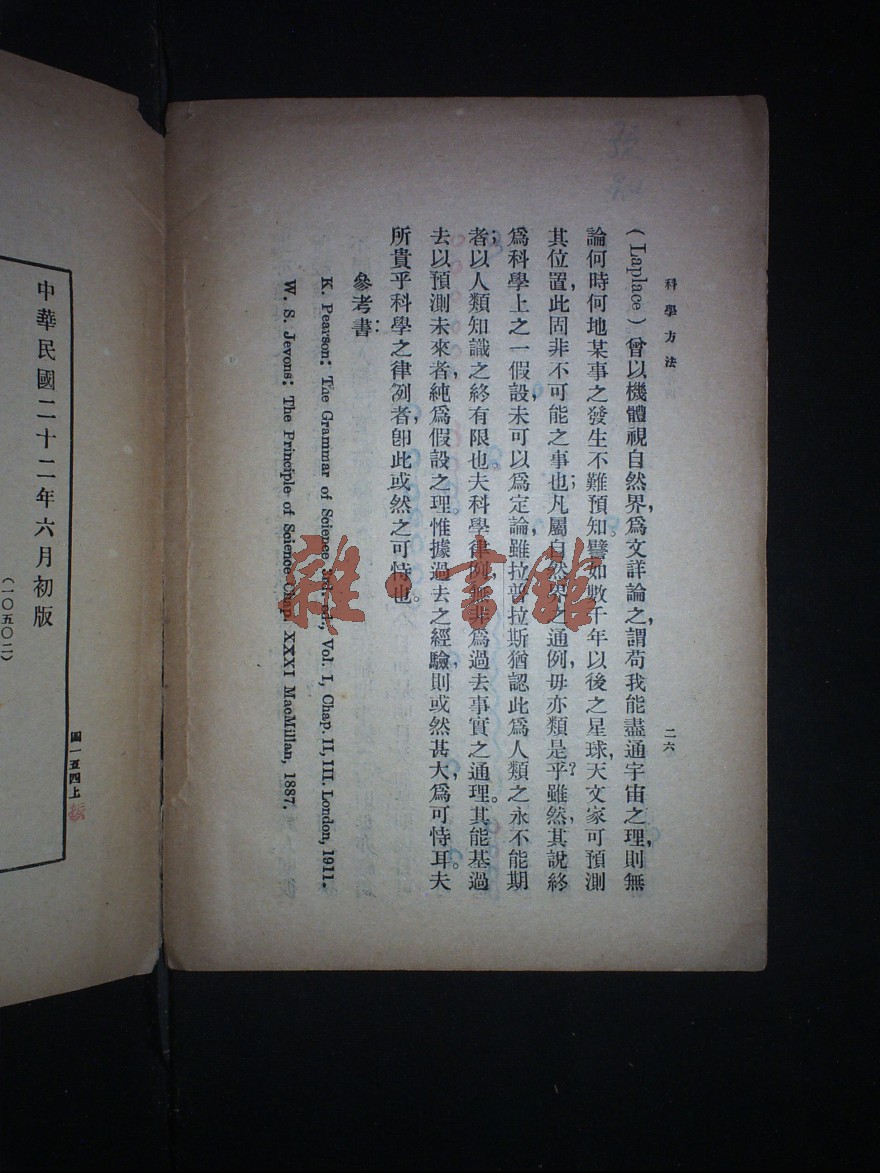 科學方法
二六
(Laplace)曾以機體視自然界,爲文詳論之,謂苟我能盡通宇宙之理,則無
論何時何地某事之發生不難預知。譬如數千年以後之星球,天文家可預測
其位置,此固非不可能之事也;凡屬自然界之通例,毋亦類是乎?雖然,其說終
爲科學上之一假設,未可以爲定論,雖拉普拉斯猶認此爲人類之永不能期
者;以人類知識之終有限也。夫科學律例,無非爲過去事實之通理。其能基過
去以預測未來者,純爲假設之理。惟據過去之經驗,則或然甚大,爲可恃耳。夫
所貴乎科學之律例者,卽此或然之可恃也。
參考書:
K. Pearson: The Grammar of Science 3rd ed., Vol. I, Chap. II, III. London, 1911.
W. S. Jevons: The Principle of Science Chap. XXXI MacMillan, 1887.
中華民國二十二年六月初版
(一〇五〇二)
圖一五四上
雜·書館